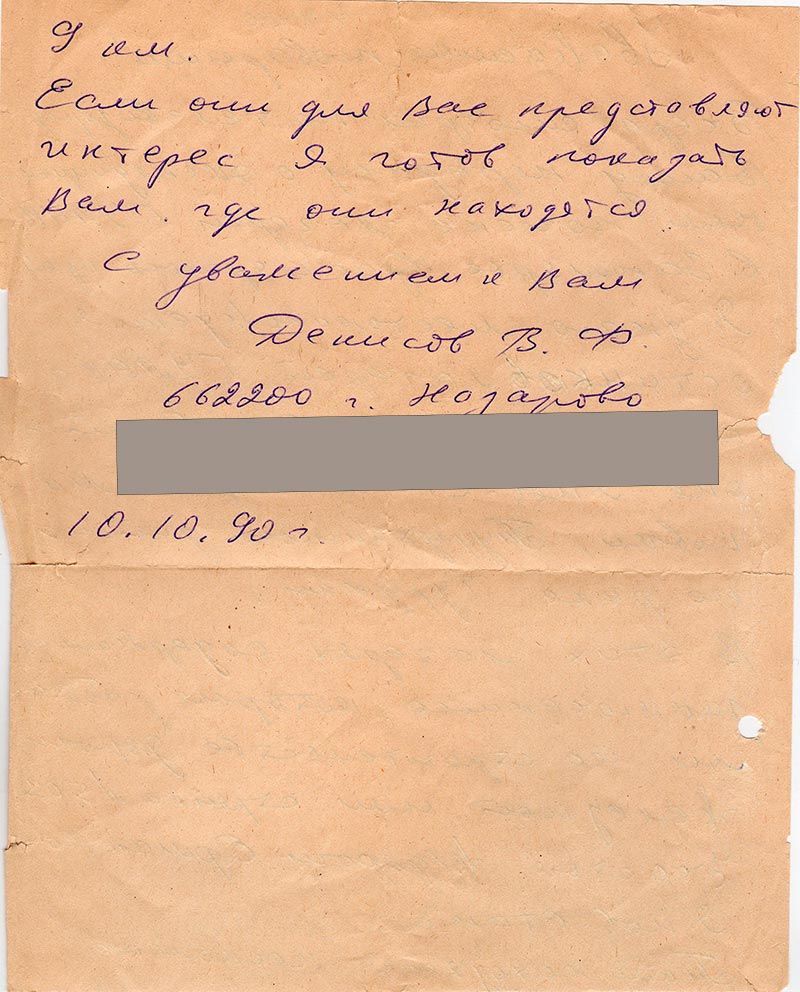 9 км.
Если они для Вас представляют
интерес я готов показать
Вам где они находятся
С уважением к Вам
Денисов В. Ф.
662200 г. Назарово
10.10.90 г.